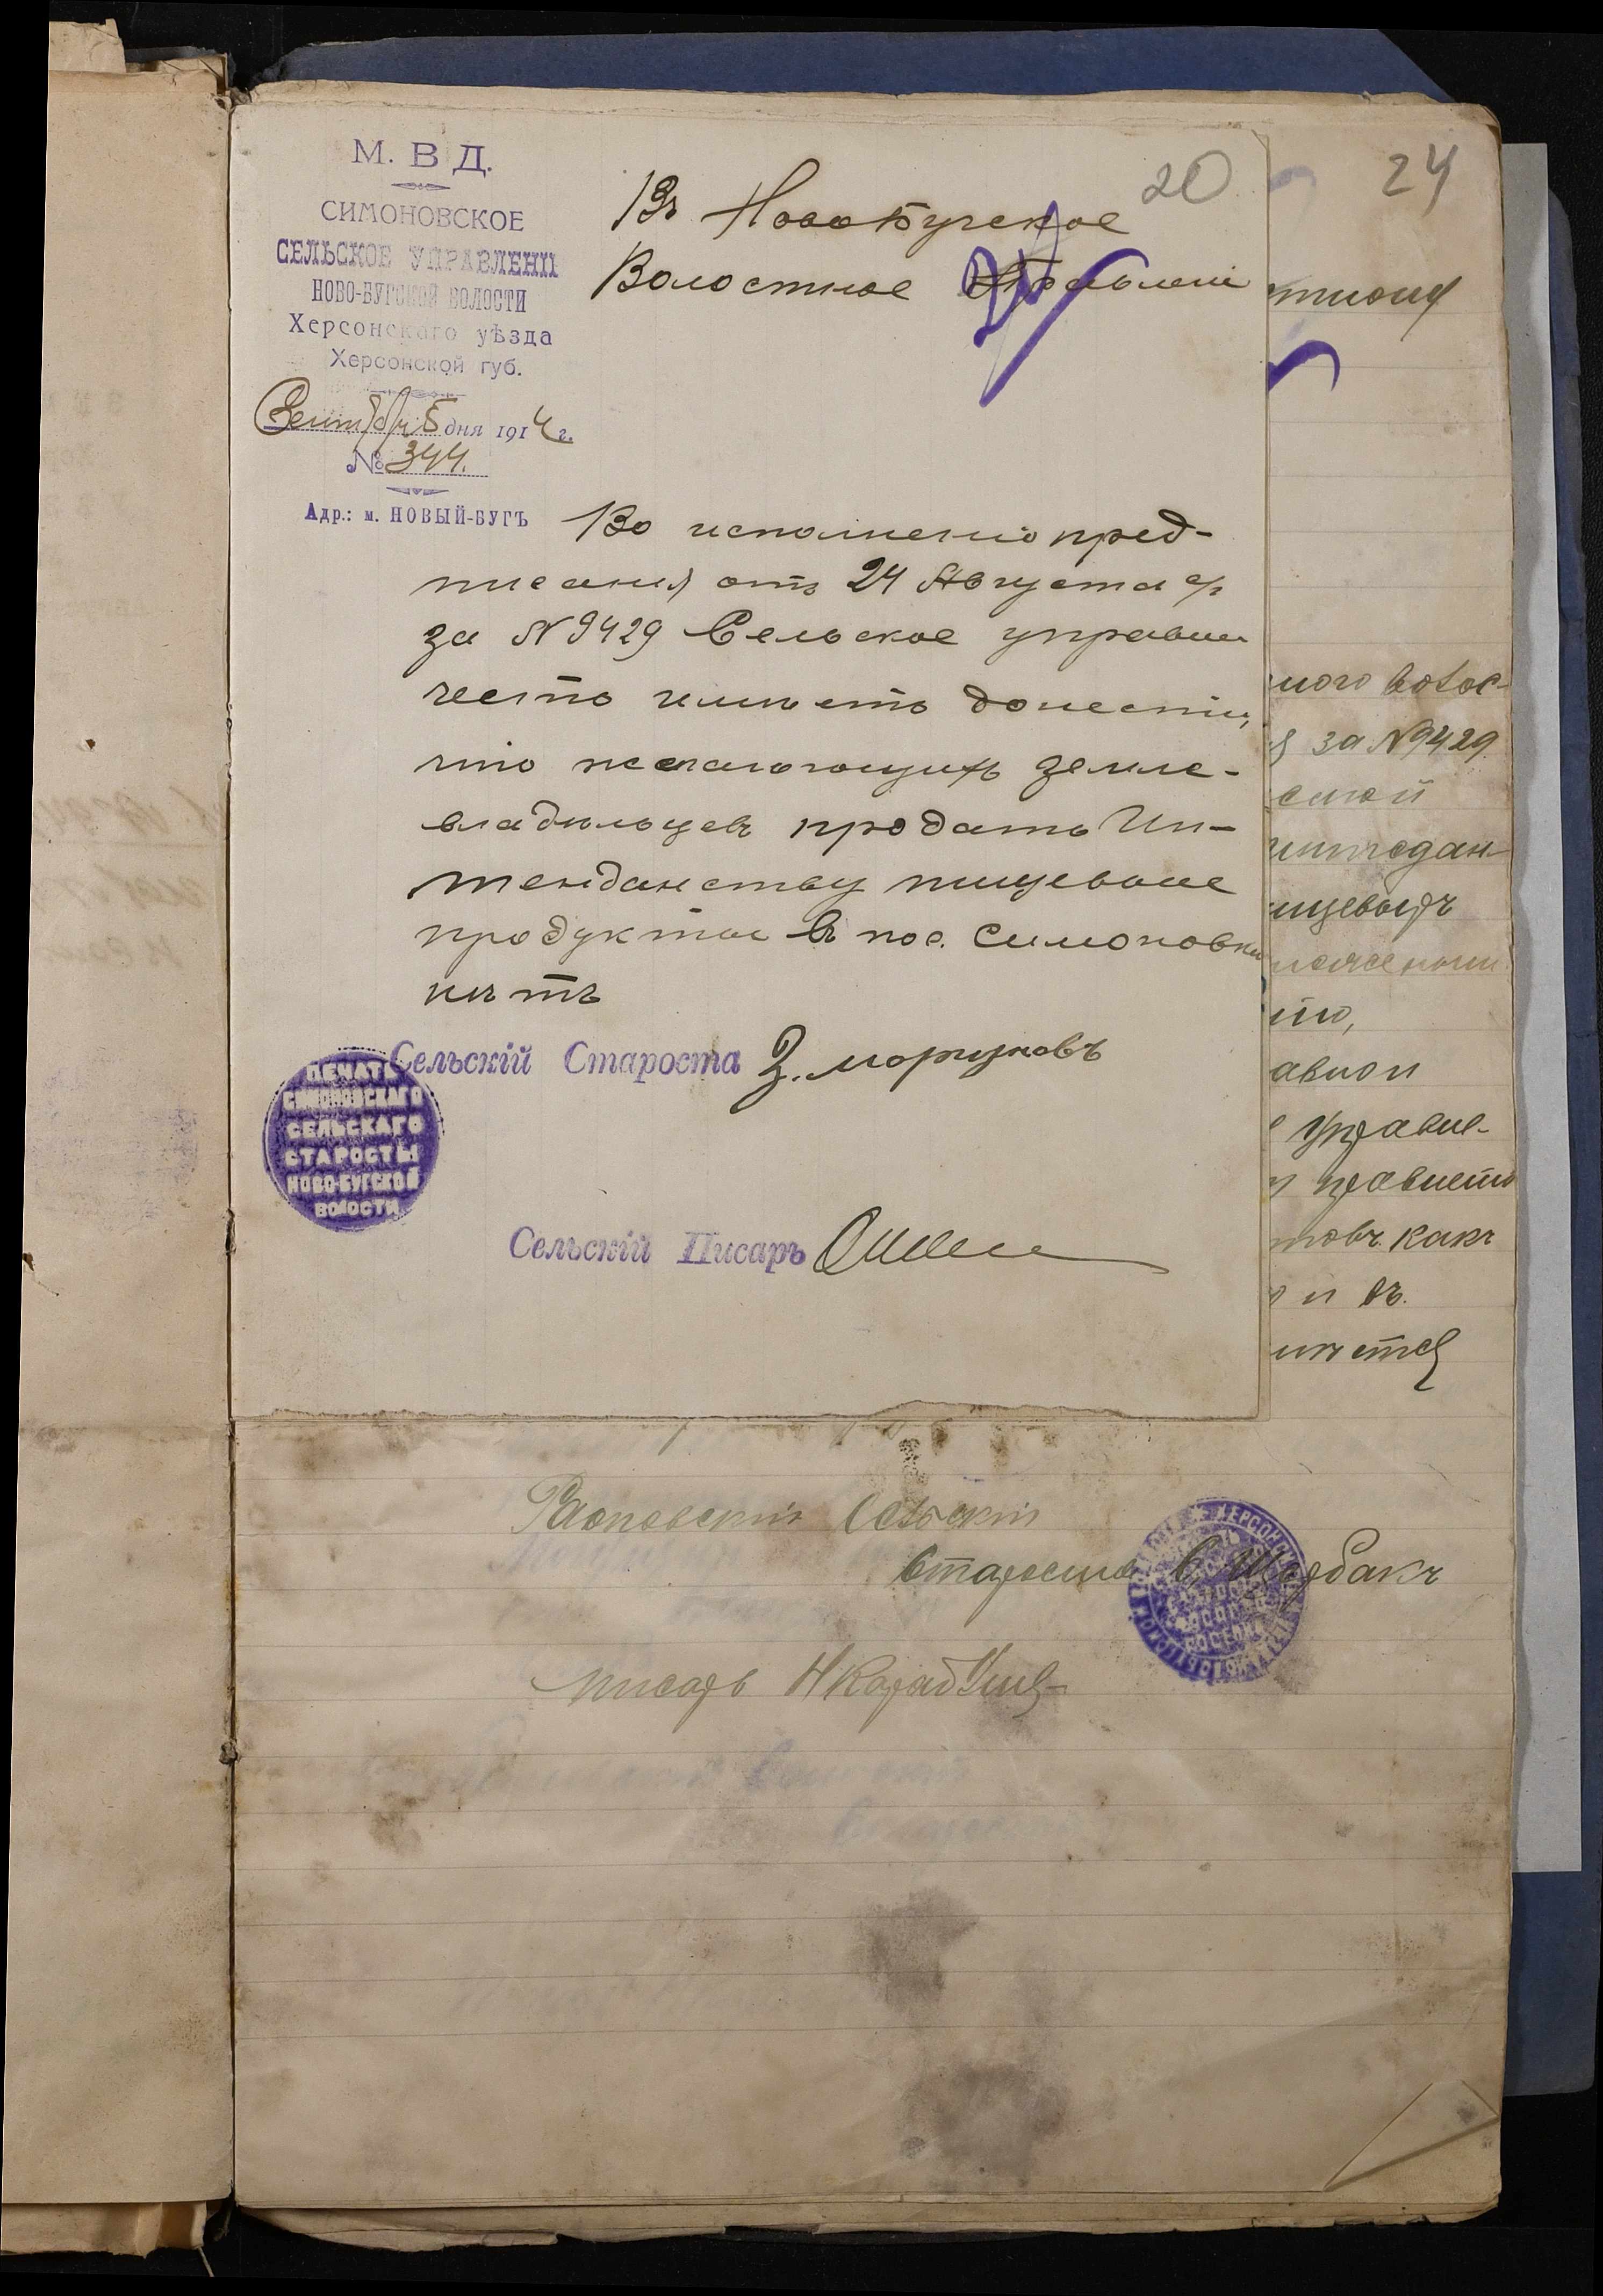 20
24
М. В Д.
СИМОНОВСКОЕ
СЕЛЬСКОЕ УПРАВЛЕНІЕ
НОВО-БУГСКОЙ ВОЛОСТИ
Херсонскаго уѣзда
Херсонской губ.
Сентября 5 дня 1914 г.
№ 344.
Адр.: м. НОВЫЙ-БУГЪ
Въ Новобугское
Волостное Правленіе
Во исполненіе пред-
писанія отъ 24 Августа с/г
за № 9429 Сельское управле
честь имѣетъ донести,
что желающихъ земле-
владѣльцевъ продать Ин-
тендантству пищевые
продукты въ пос. Симоновки
нѣтъ
Сельскій Староста З. моргуновъ
ПЕЧАТЬ
СИМОНОВСКАГО
СЕЛЬСКАГО
СТАРОСТЫ
НОВО-БУГСКОЙ
ВОЛОСТИ
Сельскій Писарь
ного волос-
за № 9429
ищевыхъ
Управле-
какъ
и въ
Сельскій
Староста С. Щербакъ
писарь